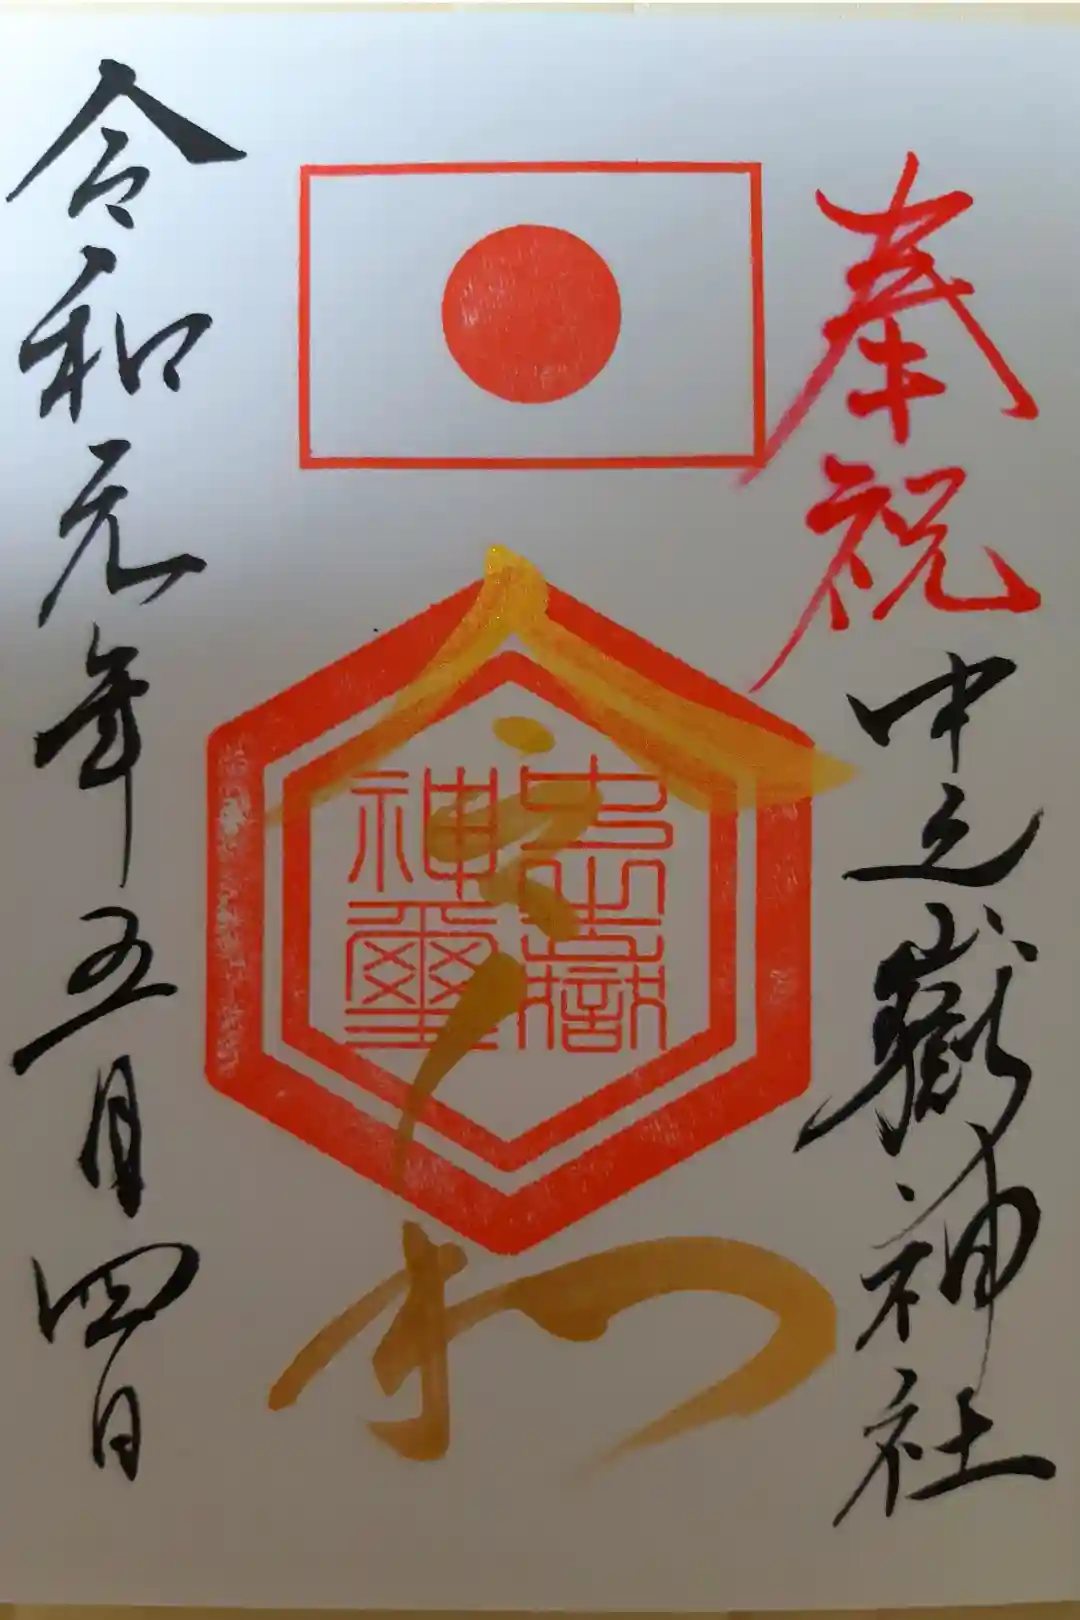 奉祝
中之嶽神社
令和
中之嶽
神璽
令和元年五月四日